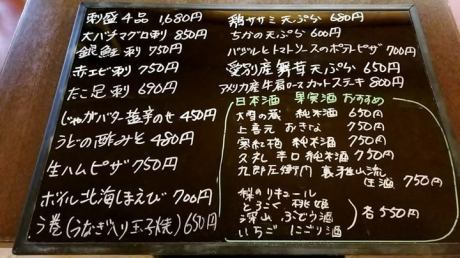 刺盛4品 1,680円
大バチマグロ刺 850円
銀鮭刺 750円
赤エビ刺 750円
たこ足刺 690円
じゃがバター塩辛のせ 450円
うどの酢みそ 480円
生ハムピザ 750円
ボイル北海しまえび 700円
う巻(うなぎ入り玉子焼) 650円
鶏ササミ天ぷら 680円
ちかの天ぷら 600円
バジルとトマトソースのポテトピザ 700円
愛別産舞茸天ぷら 650円
アメリカ産牛肩ロースカットステーキ 800円
日本酒 果実酒 おすすめ
大雪の蔵 純米酒 650円
上喜元 おきな 750円
寒紅梅 純米酒 750円
久礼 辛口純米酒 750円
九郎左衛門 裏雅山流
生酒 750円
梨のリキュール
とろこく 桃姫
深山 ぶどう酒
いちご にごり酒
各550円